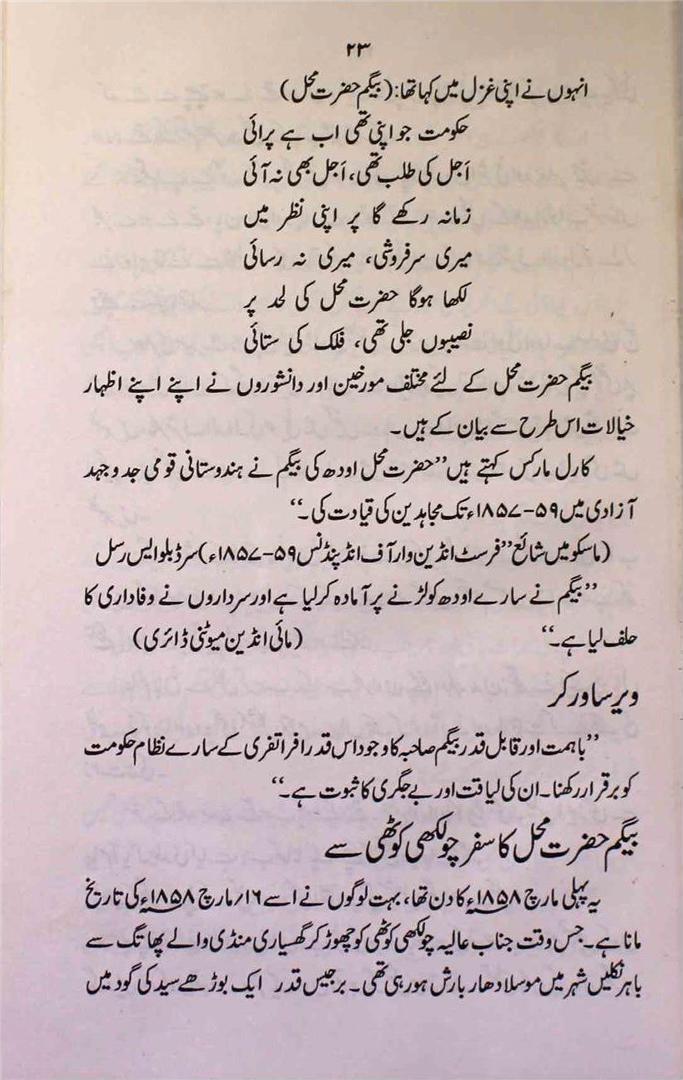 ۲۳
انہوں نے اپنی غزل میں کہا تھا: (بیگم حضرت محل)
حکومت جو اپنی تھی اب ہے پرائی
اَجل کی طلب تھی، اَجل بھی نہ آئی
زمانہ رکھے گا پر اپنی نظر میں
میری سرفروشی، میری نہ رسائی
لکھا ہوگا حضرت محل کی لحد پر
نصیبوں جلی تھی، فلک کی ستائی
بیگم حضرت محل کے لئے مختلف مورخین اور دانشوروں نے اپنے اپنے اظہار
خیالات اس طرح سے بیان کے ہیں۔
کارل مارکس کہتے ہیں ”حضرت محل اودھ کی بیگم نے ہندوستانی قومی جدوجہد
آزادی میں ۵۹-۱۸۵۷ء تک مجاہدین کی قیادت کی۔“
(ماسکو میں شائع ”فرسٹ انڈین وار آف انڈپنڈنس ۵۹-۱۸۵۷ء) سر ڈبلو ایس رسل
”بیگم نے سارے اودھ کو لڑنے پر آمادہ کرلیا ہے اور سرداروں نے وفاداری کا
حلف لیا ہے۔“ (مائی انڈین میوٹنی ڈائری)
ویر ساورکر
”باہمت اور قابل قدر بیگم صاحبہ کا وجود اس قدر افراتفری کے سارے نظام حکومت
کو برقرار رکھنا۔ ان کی لیاقت اور بے جگری کا ثبوت ہے۔“
بیگم حضرت محل کا سفر چولکھی کوٹھی سے
یہ پہلی مارچ ۱۸۵۸ء کا دن تھا، بہت لوگوں نے اسے ۱۶/مارچ ۱۸۵۸ء کی تاریخ
مانا ہے۔ جس وقت جناب عالیہ چولکھی کوٹھی کو چھوڑ کر گھسیاری منڈی والے پھاٹک سے
باہر نکلیں شہر میں موسلا دھار بارش ہورہی تھی۔ برجیس قدر ایک بوڑھے سید کی گود میں